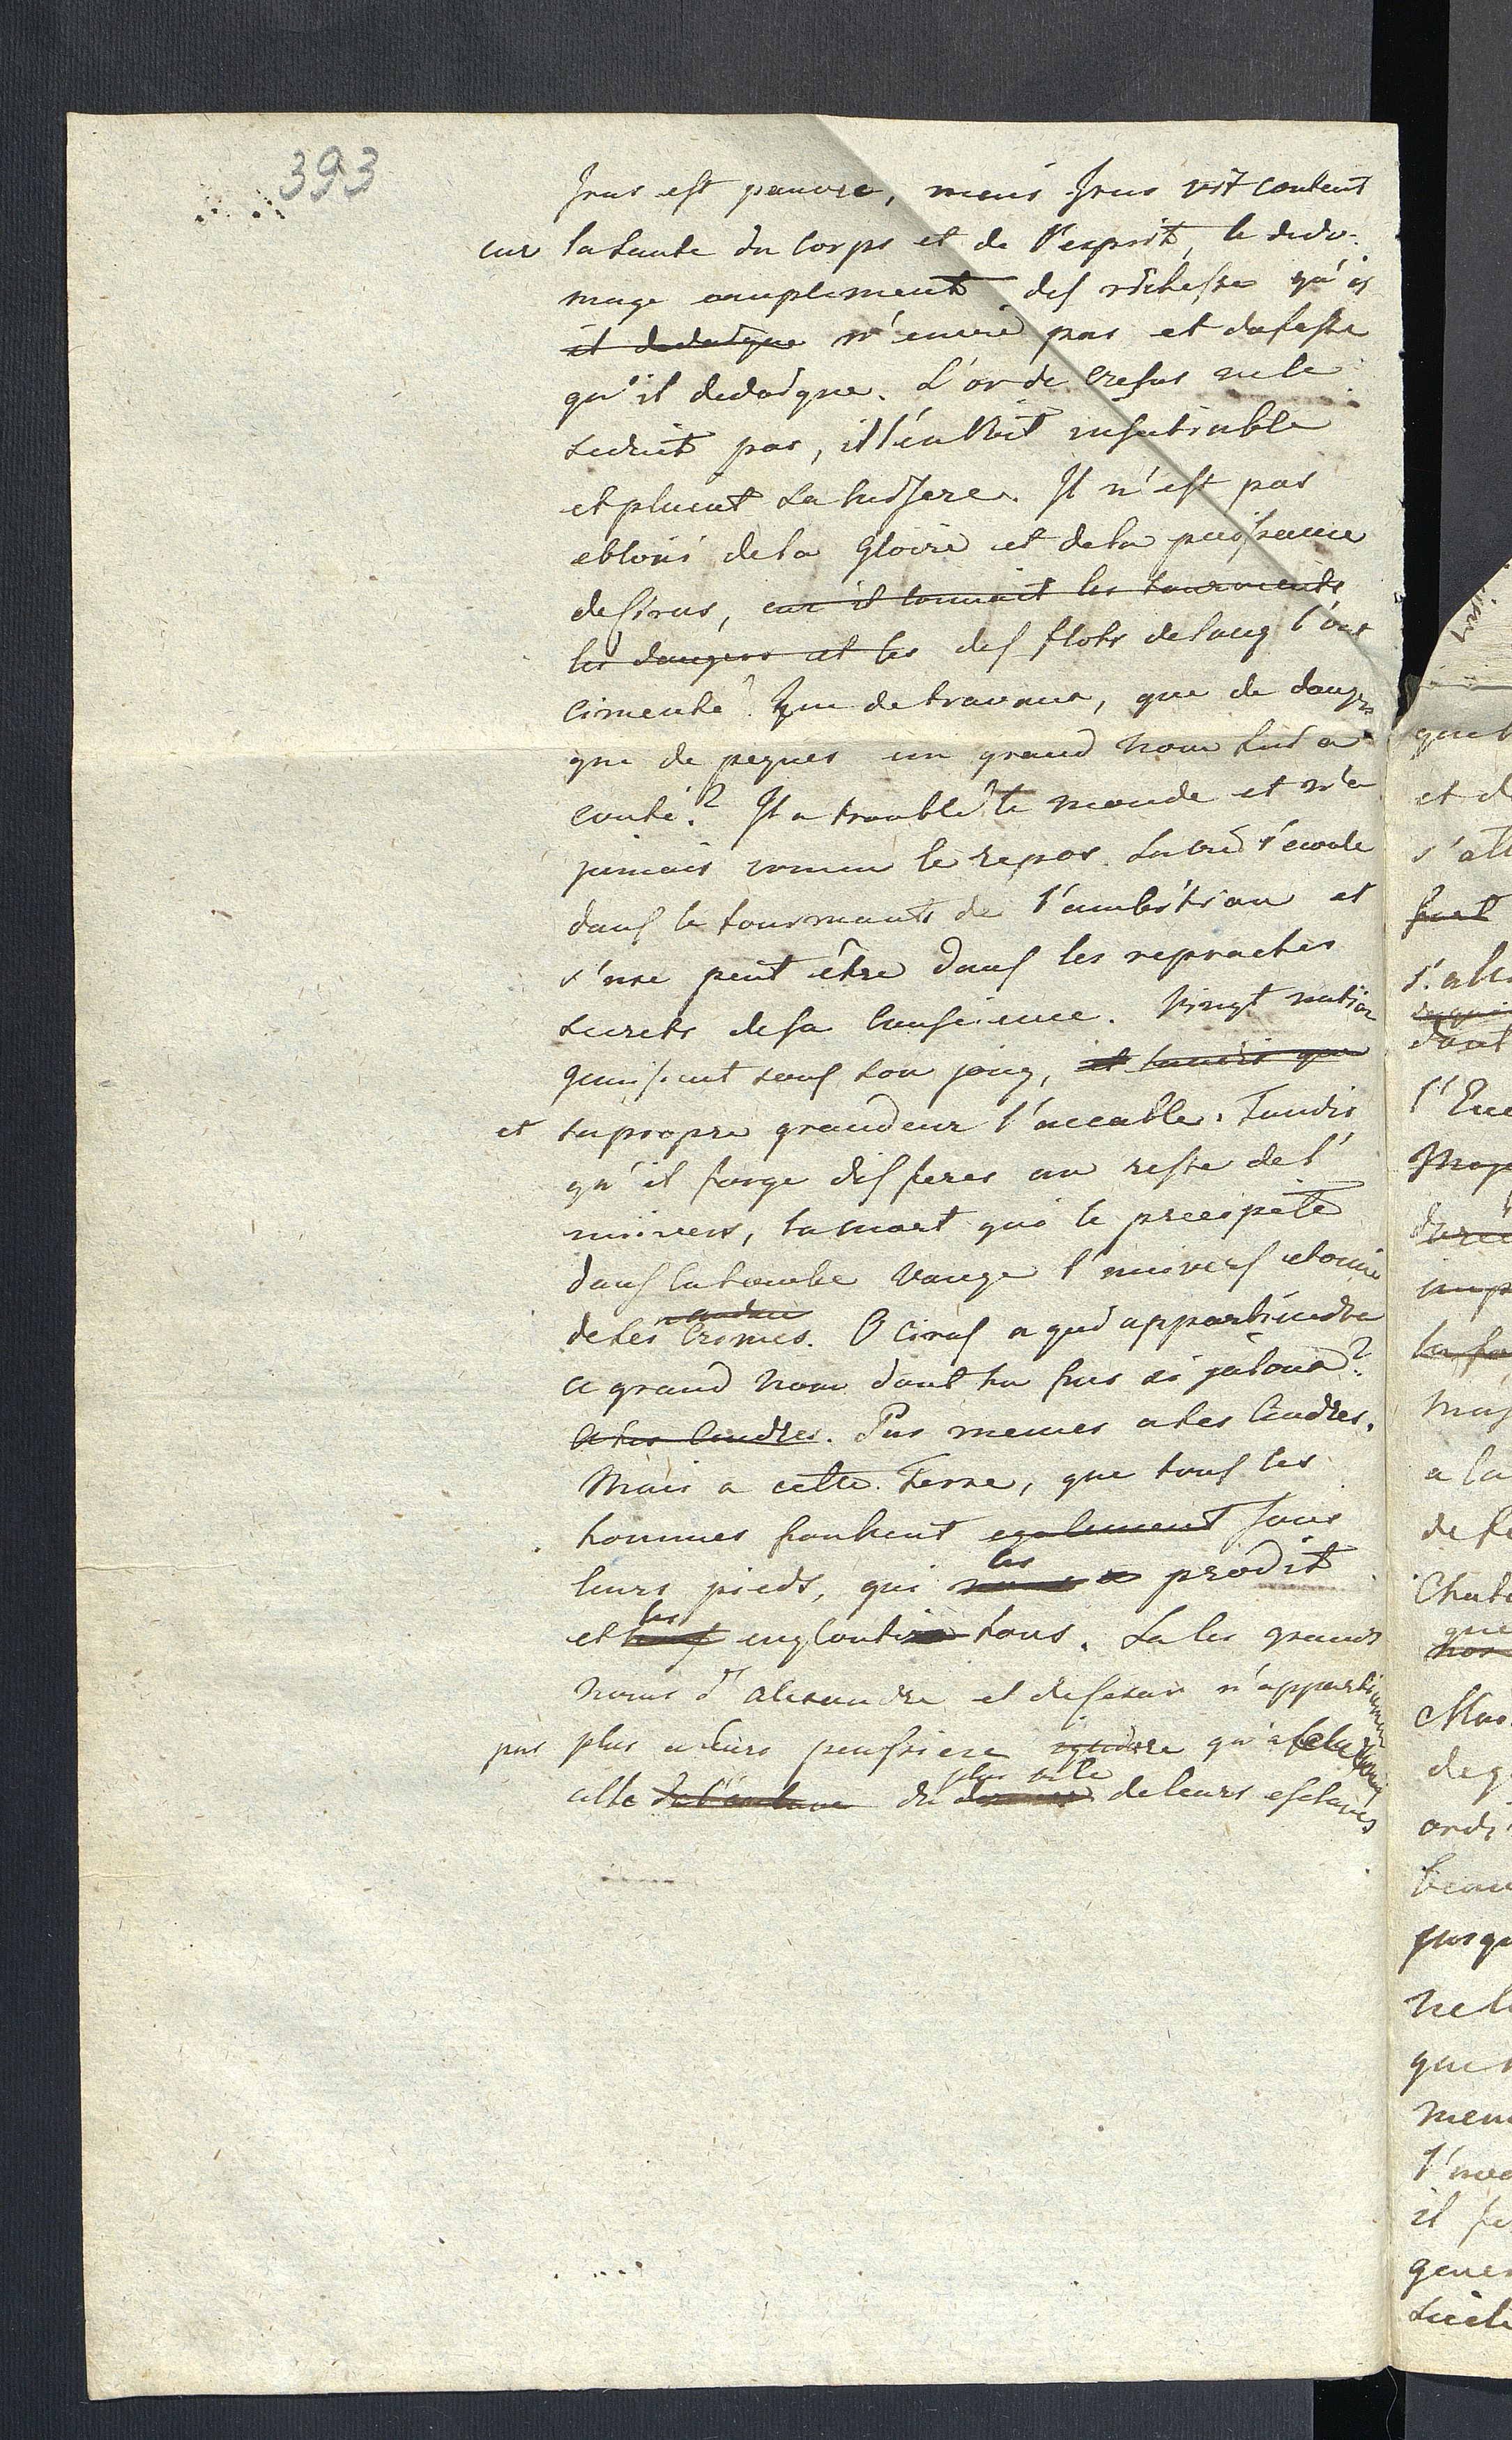 393
Irus est pauvre, mais Irus vit content
car la sante du corps et de l'esprit, le dedo-
mage amplement des richesses qu'il
il dedaigne n'envie pas et du faste
qu'il dedaigne. L'or de Cresus ne le
seduit pas, il l'en voit insatiable
et plaint sa misere. Il n'est pas
ebloui de la gloire et de la puissance
de Cirus, car il connait les tourments
les dangers et les des flots de sang l'ont
cimenté. Que de travaux, que de dangers
que de peines un grand nom lui a
couté? Il a troublé le monde et n'a
jamais connu le repos. Sa vie s'ecoule
dans le tourmants de l'ambition et
s'use peut être dans les reproches
secrets de sa consience. Vingt nation
gemissent sous son joug, et tandis que
et sa propre grandeur l'accable. Tandis
qu'il forge des feres au reste de l'
univers, la mort qui le precipite
dans la tombe vange l'univers etonné
de ses crimes. O Cirus a qui appartiendra
ce grand nom dont tu fus si jaloux?
a tes cendres. Pas memes a tes cendres.
Mais a cette terre, que tous les
hommes foulent egalement sous
leurs pieds, qui les prodit
et les engloutira tous. La les grands
noms d'Alexandre et de Cesar n'appartiennent
pas plus a leurs poussiere qu'a
celle de l'esclave du plus vile de leurs esclaves
que
et d
s'att
dont
a la
de
que
ordi
beau
jusqu
ne l
que
mem
il
gener